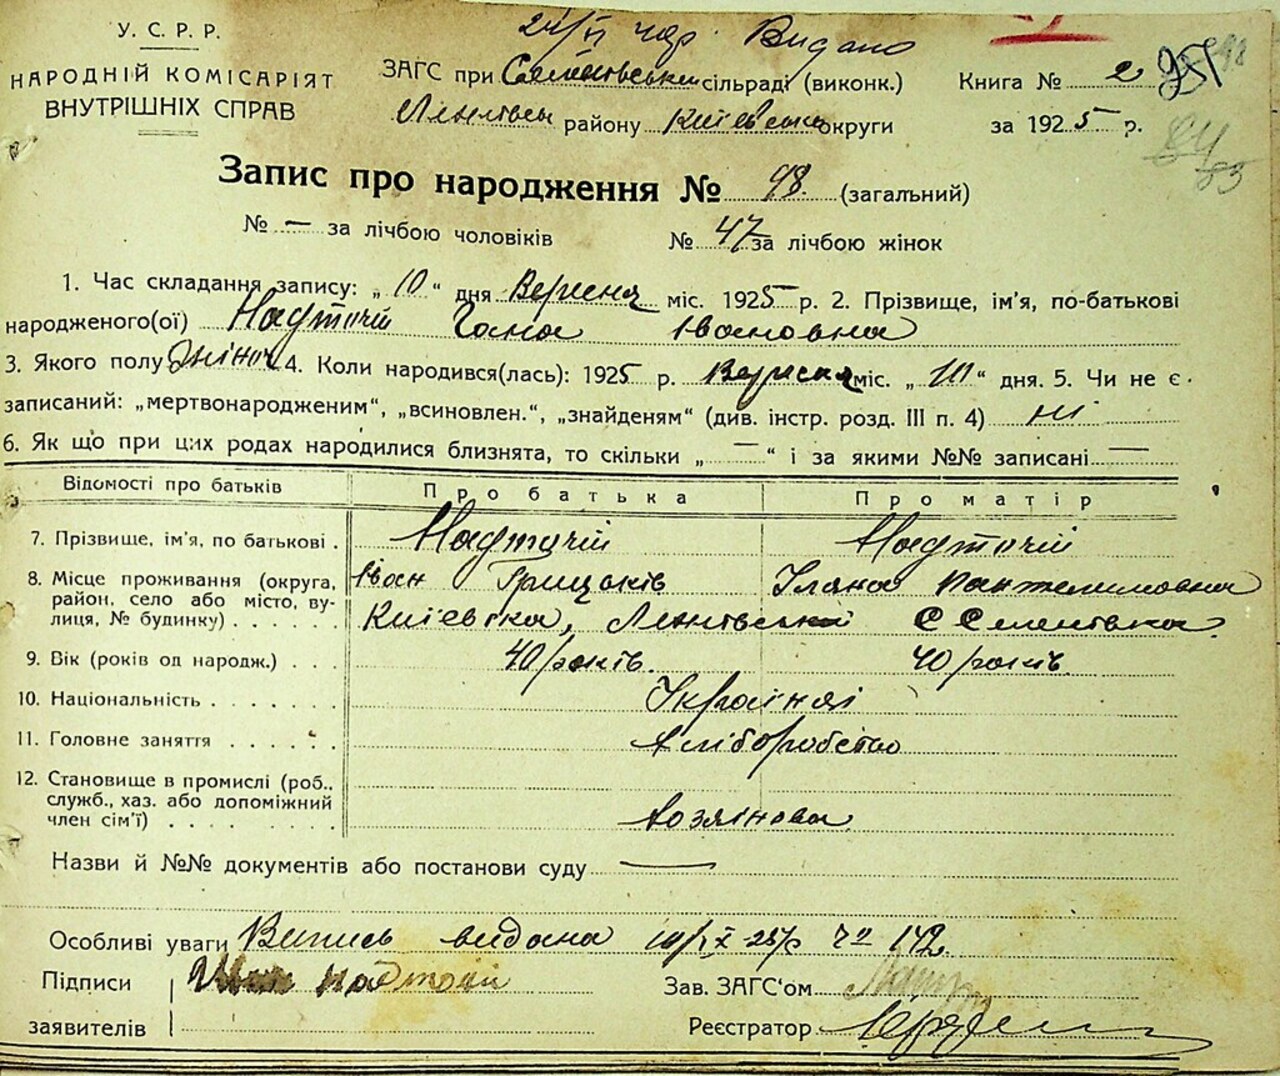 У. С. Р. Р.
НАРОДНІЙ КОМІСАРІЯТ
ВНУТРІШНІХ СПРАВ
Видано
ЗАГС при сільраді (виконк.)
району Київсько округи
Книга № 2
за 1925 р.
Запис про народження № 98. (загальний)
№ — за лічбою чоловіків № 47 за лічбою жінок
1. Час складання запису: „ 10 “ дня Вересня міс. 1925 р. 2. Прізвище, ім'я, по-батькові
народженого(ої) Надточій Гана Івановна
3. Якого полу жіноч 4. Коли народився(лась): 1925 р. Вересня міс. „ “ дня. 5. Чи не є
записаний: „мертвонародженим“, „всиновлен.“, „знайденям“ (див. інстр. розд. III п. 4) ні
6. Як що при цих родах народилися близнята, то скільки „ — “ і за якими №№ записані —
Відомості про батьків Про батька Про матір
7. Прізвище, ім'я, по батькові . Надточій Надточій
Іван Грицьків Уляна Пантелимовна
8. Місце проживання (округа, район, село або місто, вулиця, № будинку) Київська,
9. Вік (років од народж.) . . . 40 років. 40 років.
10. Національність . . . . . . . Україняі
11. Головне заняття . . . . . . Хліборобство
12. Становище в промислі (роб., служб., хаз. або допоміжний член сім'ї) . . . . . . . . Хозяінова
Назви й №№ документів або постанови суду —
Особливі уваги Випись видана 10/IX-25/р чп 142.
Підписи Надточій
заявителів
Зав. ЗАГС'ом
Реєстратор